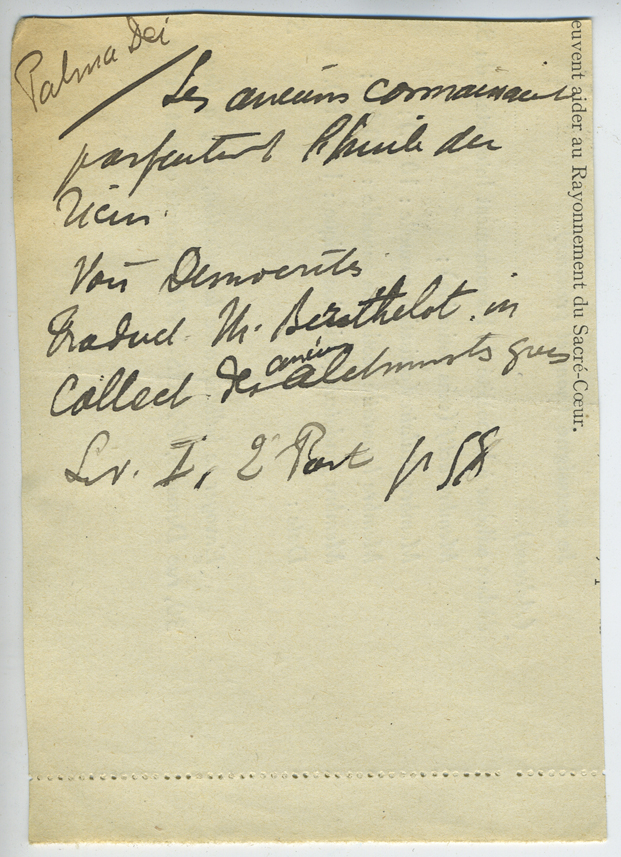 Palma Dei
Les anciens connaissaient
parfaitement l'huile de
Ricin.
Voir Democrite
Traduct. M. Berthelot, in
Collect. des anciens alchimistes grecs
Liv. I, 2e Part p 58
euvent aider au Rayonnement du Sacré-Cœur.